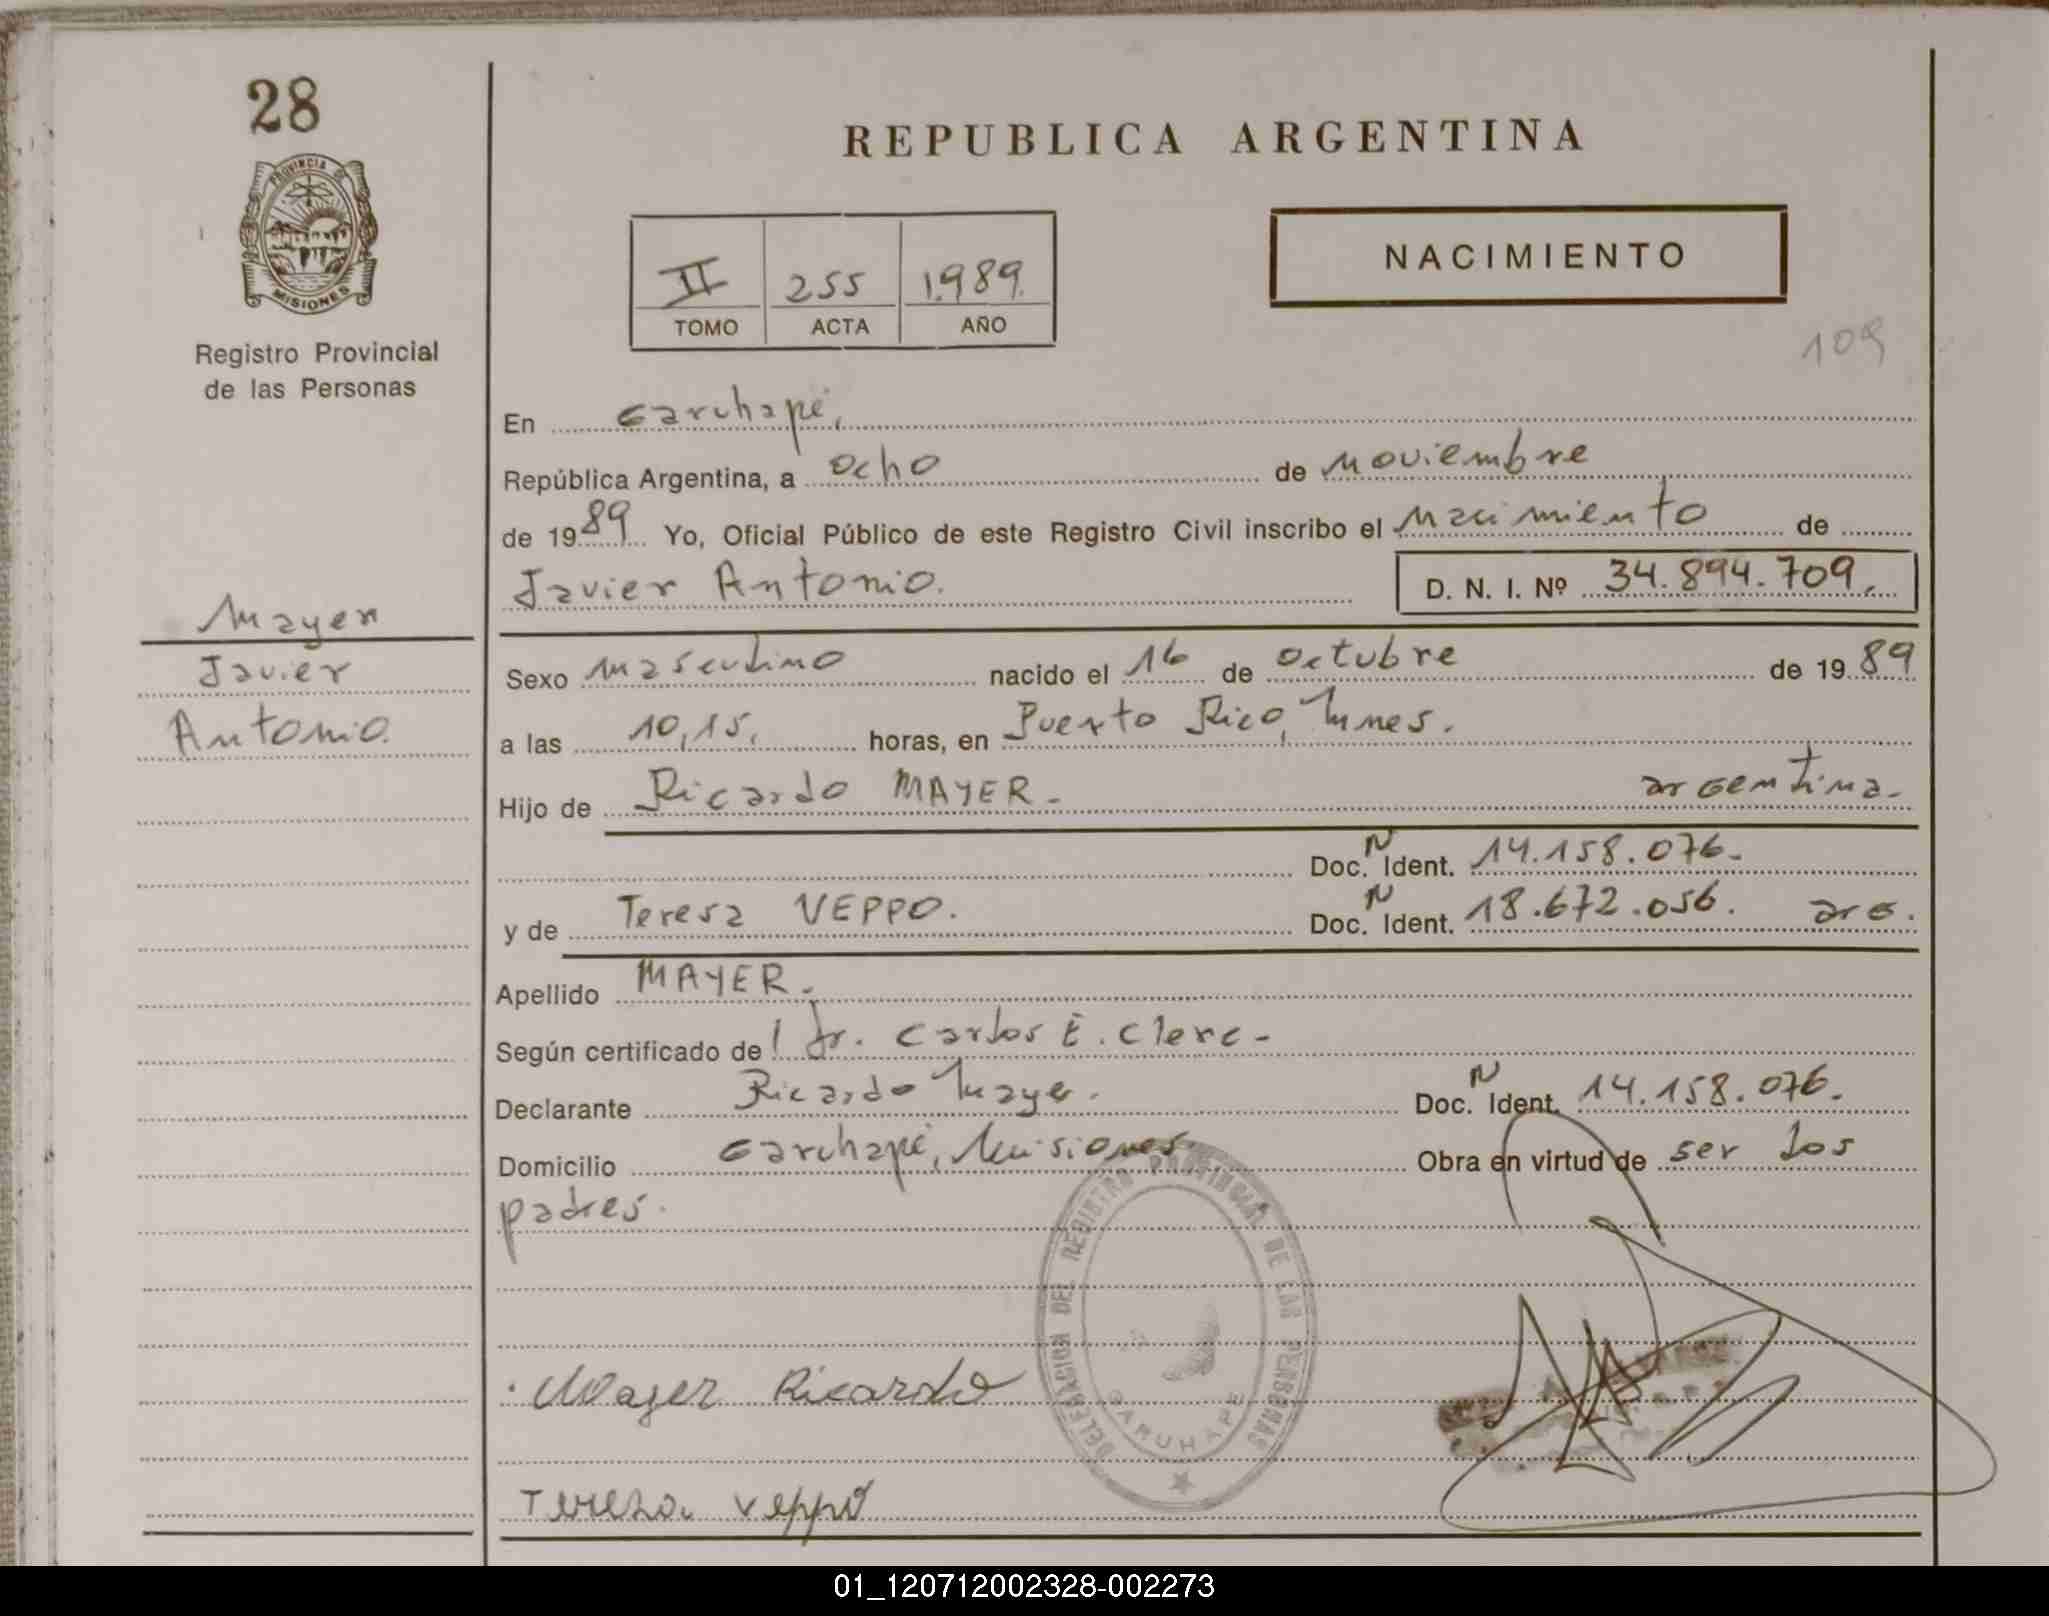 28
PROVINCIA DE
MISIONES
Registro Provincial
de las Personas
REPUBLICA ARGENTINA
II 255 1.989.
TOMO ACTA AÑO
NACIMIENTO
109
En Garuhapé,
República Argentina, a ocho de Noviembre
de 1989 Yo, Oficial Público de este Registro Civil inscribo el Nacimiento de
Javier Antonio. D. N. I. Nº 34.894.709.
Mayer
Javier
Antonio.
Sexo masculino nacido el 16 de octubre de 1989
a las 10,15, horas, en Puerto Rico, Mnes.
Hijo de Ricardo MAYER. argentina.
Doc. N Ident. 14.158.076.
y de Teresa VEPPO. Doc. N Ident. 18.672.056. arg.
Apellido MAYER.
Según certificado del Dr. Carlos E. Clerc.
Declarante Ricardo Mayer. Doc. N Ident. 14.158.076.
Domicilio Garuhapé, Misiones. Obra en virtud de ser los
padres.
DELEGACION DEL REGISTRO PROVINCIAL DE LAS PERSONAS
GARUHAPE
Mayer Ricardo
Tereza Veppo
01_120712002328-002273